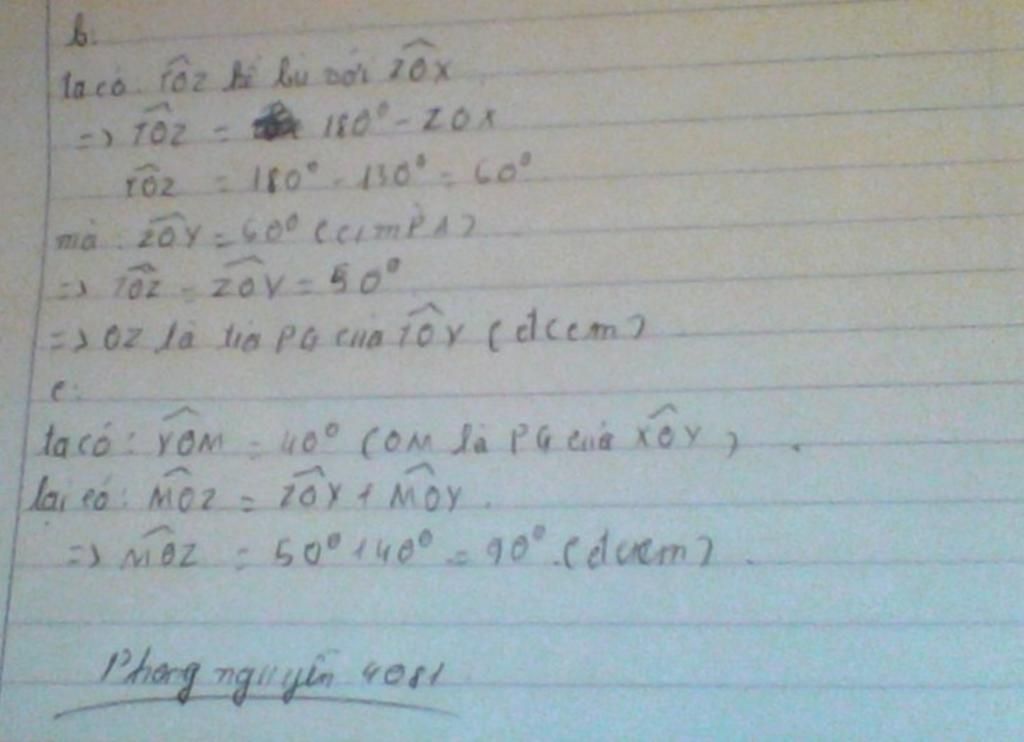 b.
ta có. TOZ kề bù với ZOX
=> TOZ = 180° - ZOX
TOZ = 180° - 130° = 60°
mà: ZOY = 60° (cmPA)
=> TOZ = ZOY = 50°
=> OZ là tia PG của TOY (đccm)
c:
ta có: YOM = 40° (OM là PG của XOY)
lại có: MOZ = ZOY + MOY.
=> MOZ = 50° + 40° = 90°. (đccm).
Phong nguyễn 4081